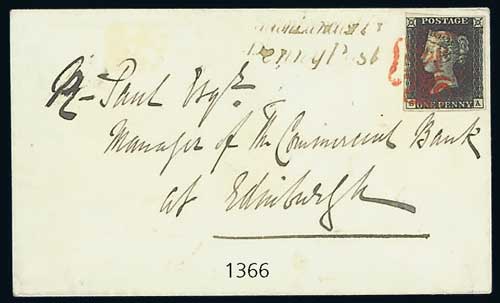 Penny Post
POSTAGE
ONE PENNY
A
Paul Esqr.
Manager of The Commercial Bank
at Edinburgh
1366